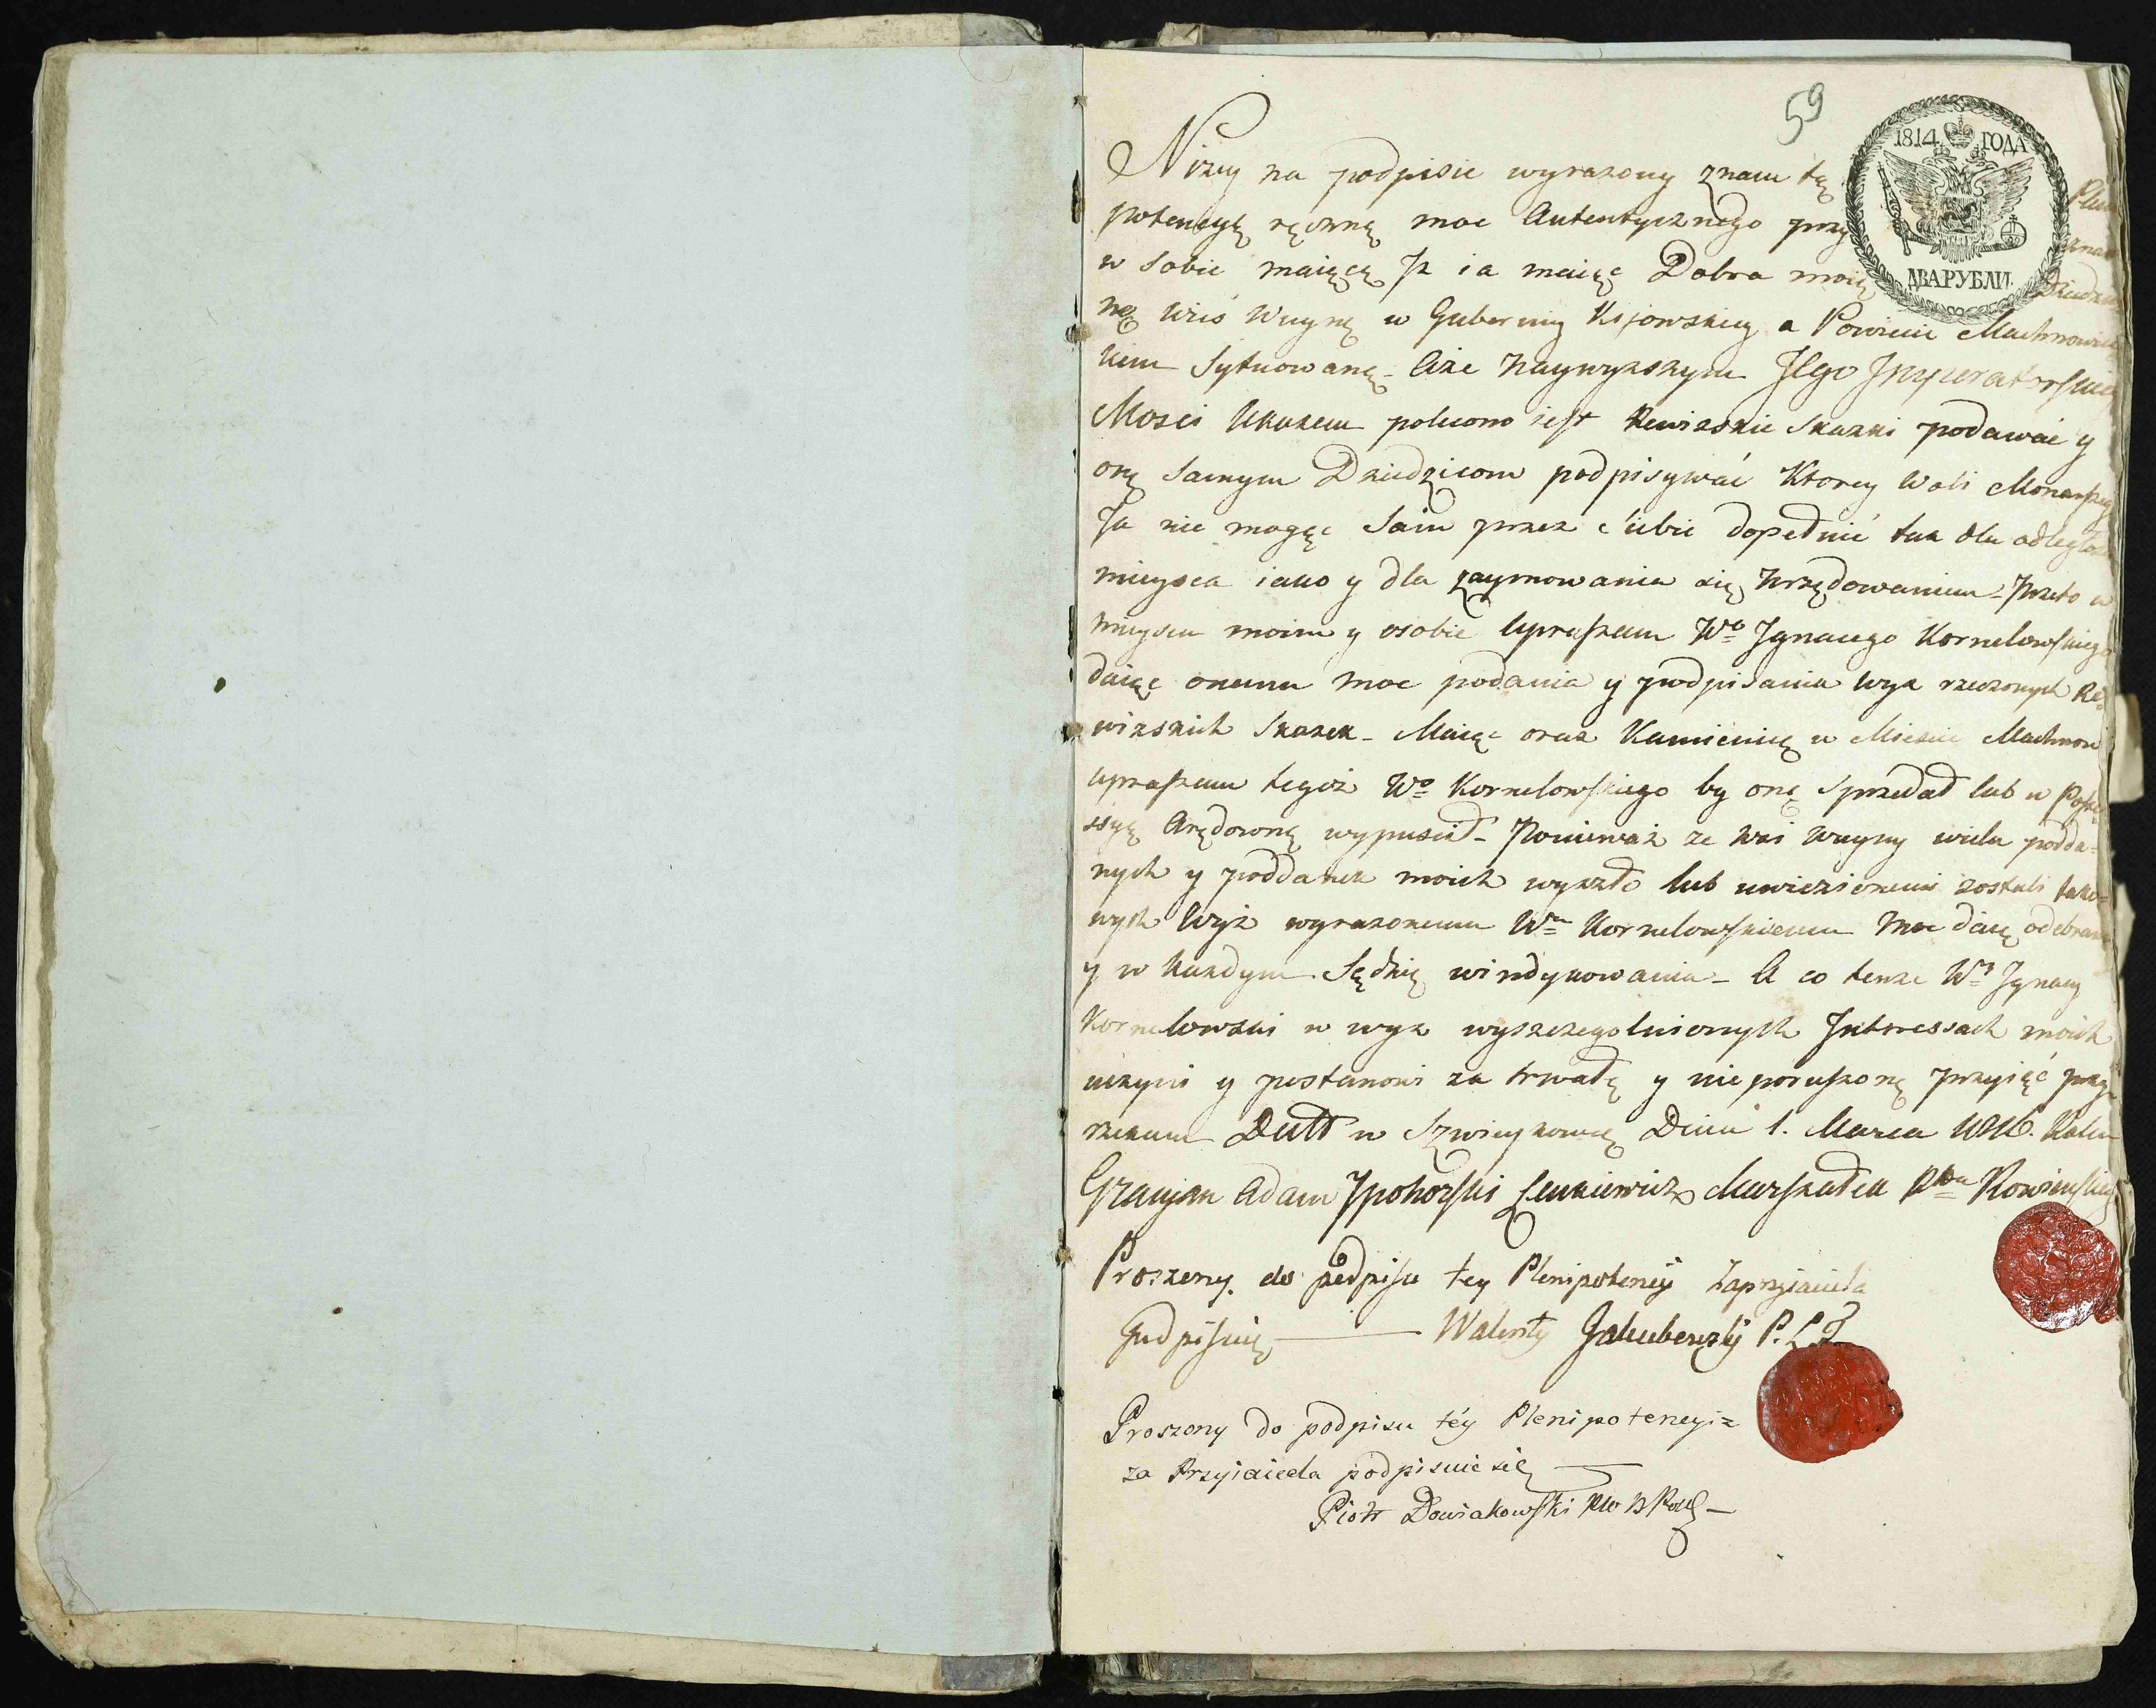 59
1814 ГОДА
ДВА РУБЛИ.
Niżey na podpisie wyrażony znam tą Pleni
potencyą ręczną moc Autentycznego przy znan
w sobie maiącą Jż ia maiąc Dobra moie Dziedzicz
ną wieś Wuynę w Gubernij Kijowskiey a Powiecie Machnowiec
kim Sytuowaną - Aże Naywyższym Jego Jmperatorskiey
Mosci Ukazem polecono iest Rewizskie Skazki podawać y
oną samym Dziedzicom podpisywać Ktorey Woli Monarszey
Ja nie mogąc Sam przez siebie dopełnić tak dla odległości
mieysca iako y dla zaymowania się Urzędowaniem - Przeto w
mieyscu moim y osobie Upraszam Wo Jgnacego Kornelowskiego
daiąc onemu moc podania y podpisania wyż rzeczonych Re=
wizskich Skazek - Maiąc oraz Kamienicę w Miescie Machnow
upraszam tegoż Wo Kornelowskiego by onę sprzedał lub w Posse=
ssyą Arędowną wypuscił - Ponieważ ze wsi Wuyny wielu podda=
nych y poddanek moich wyszło lub uwiezionemi zostali tako=
wych Wyż wyrażonemu Wmu Kornelowskiemu moc daię odebrania
y w każdym Sądzie windykowania - A co tenże Wy Jgnacy
Kornelowski w wyż wyszczegolnionych Jnteressach moich
uczyni y postanowi za trwałą y nieporuszoną przyiąć przy
rzekam Datt w Dnia 1. Marca 1816. Roku
Adam Jpohorski Lenkiewicz Marszałek Ptu Rowieński
Proszony do podpisu tey Plenipotencij za przyiaciela
podpisuię ——— Walenty Jakubowski P. L. J.
Proszony do podpisu téy Plenipotencyi=
za Przyiaciela podpisuie się —
Piotr Dowiakowski